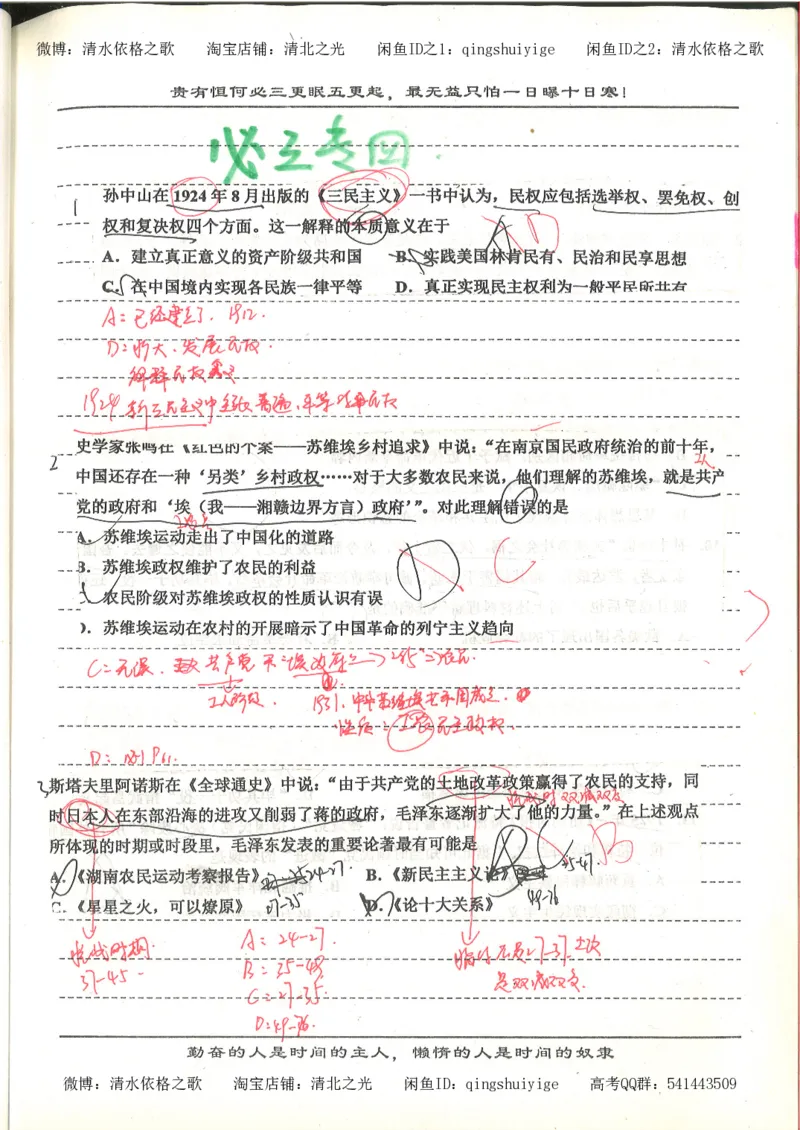 微博：清水依格之歌 淘宝店铺：清北之光 闲鱼ID之1：qingshuiyige 闲鱼ID之2：清水依格之歌
贵有恒何必三更眠五更起，最无益只怕一日曝十日寒！
必三专回.
1 孙中山在 1924 年 8 月出版的《三民主义》一书中认为，民权应包括选举权、罢免权、创
权和复决权四个方面。这一解释的本质意义在于
A D
A．建立真正意义的资产阶级共和国 B．实践美国林肯民有、民治和民享思想
C．在中国境内实现各民族一律平等 D．真正实现民主权利为一般平民所共有
A：已经建立了．1912．
D：扩大、发展民权．
解释民权
1924 新三民主义中主张普遍、平等 民权
2 史学家张鸣在《红色的个案——苏维埃乡村追求》中说：“在南京国民政府统治的前十年，
中国还存在一种‘另类’乡村政权……对于大多数农民来说，他们理解的苏维埃，就是共产
党的政府和‘埃（我——湘赣边界方言）政府’”。对此理解错误的是
A．苏维埃运动走出了中国化的道路
B．苏维埃政权维护了农民的利益
农民阶级对苏维埃政权的性质认识有误
D．苏维埃运动在农村的开展暗示了中国革命的列宁主义趋向
D C
C：无误． 共产党 不
工人阶级．
1931．中华苏维埃共和国成立．
性质：工农民主政权．
D：
3 斯塔夫里阿诺斯在《全球通史》中说：“由于共产党的土地改革政策赢得了农民的支持，同
抗战时双减双交
时日本人在东部沿海的进攻又削弱了蒋的政府，毛泽东逐渐扩大了他的力量。”在上述观点
所体现的时期或时段里，毛泽东发表的重要论著最有可能是
B
A．《湖南农民运动考察报告》 24-27． B．《新民主主义论》 45-47．
C．《星星之火，可以燎原》 27-35 D．《论十大关系》 49-76
抗战时期．
37-45
A：24-27．
B：35-48
C：27-35．
D：49-76．
27-37．土改
是双减双交．
勤奋的人是时间的主人，懒惰的人是时间的奴隶
微博：清水依格之歌 淘宝店铺：清北之光 闲鱼ID：qingshuiyige 高考QQ群：541443509